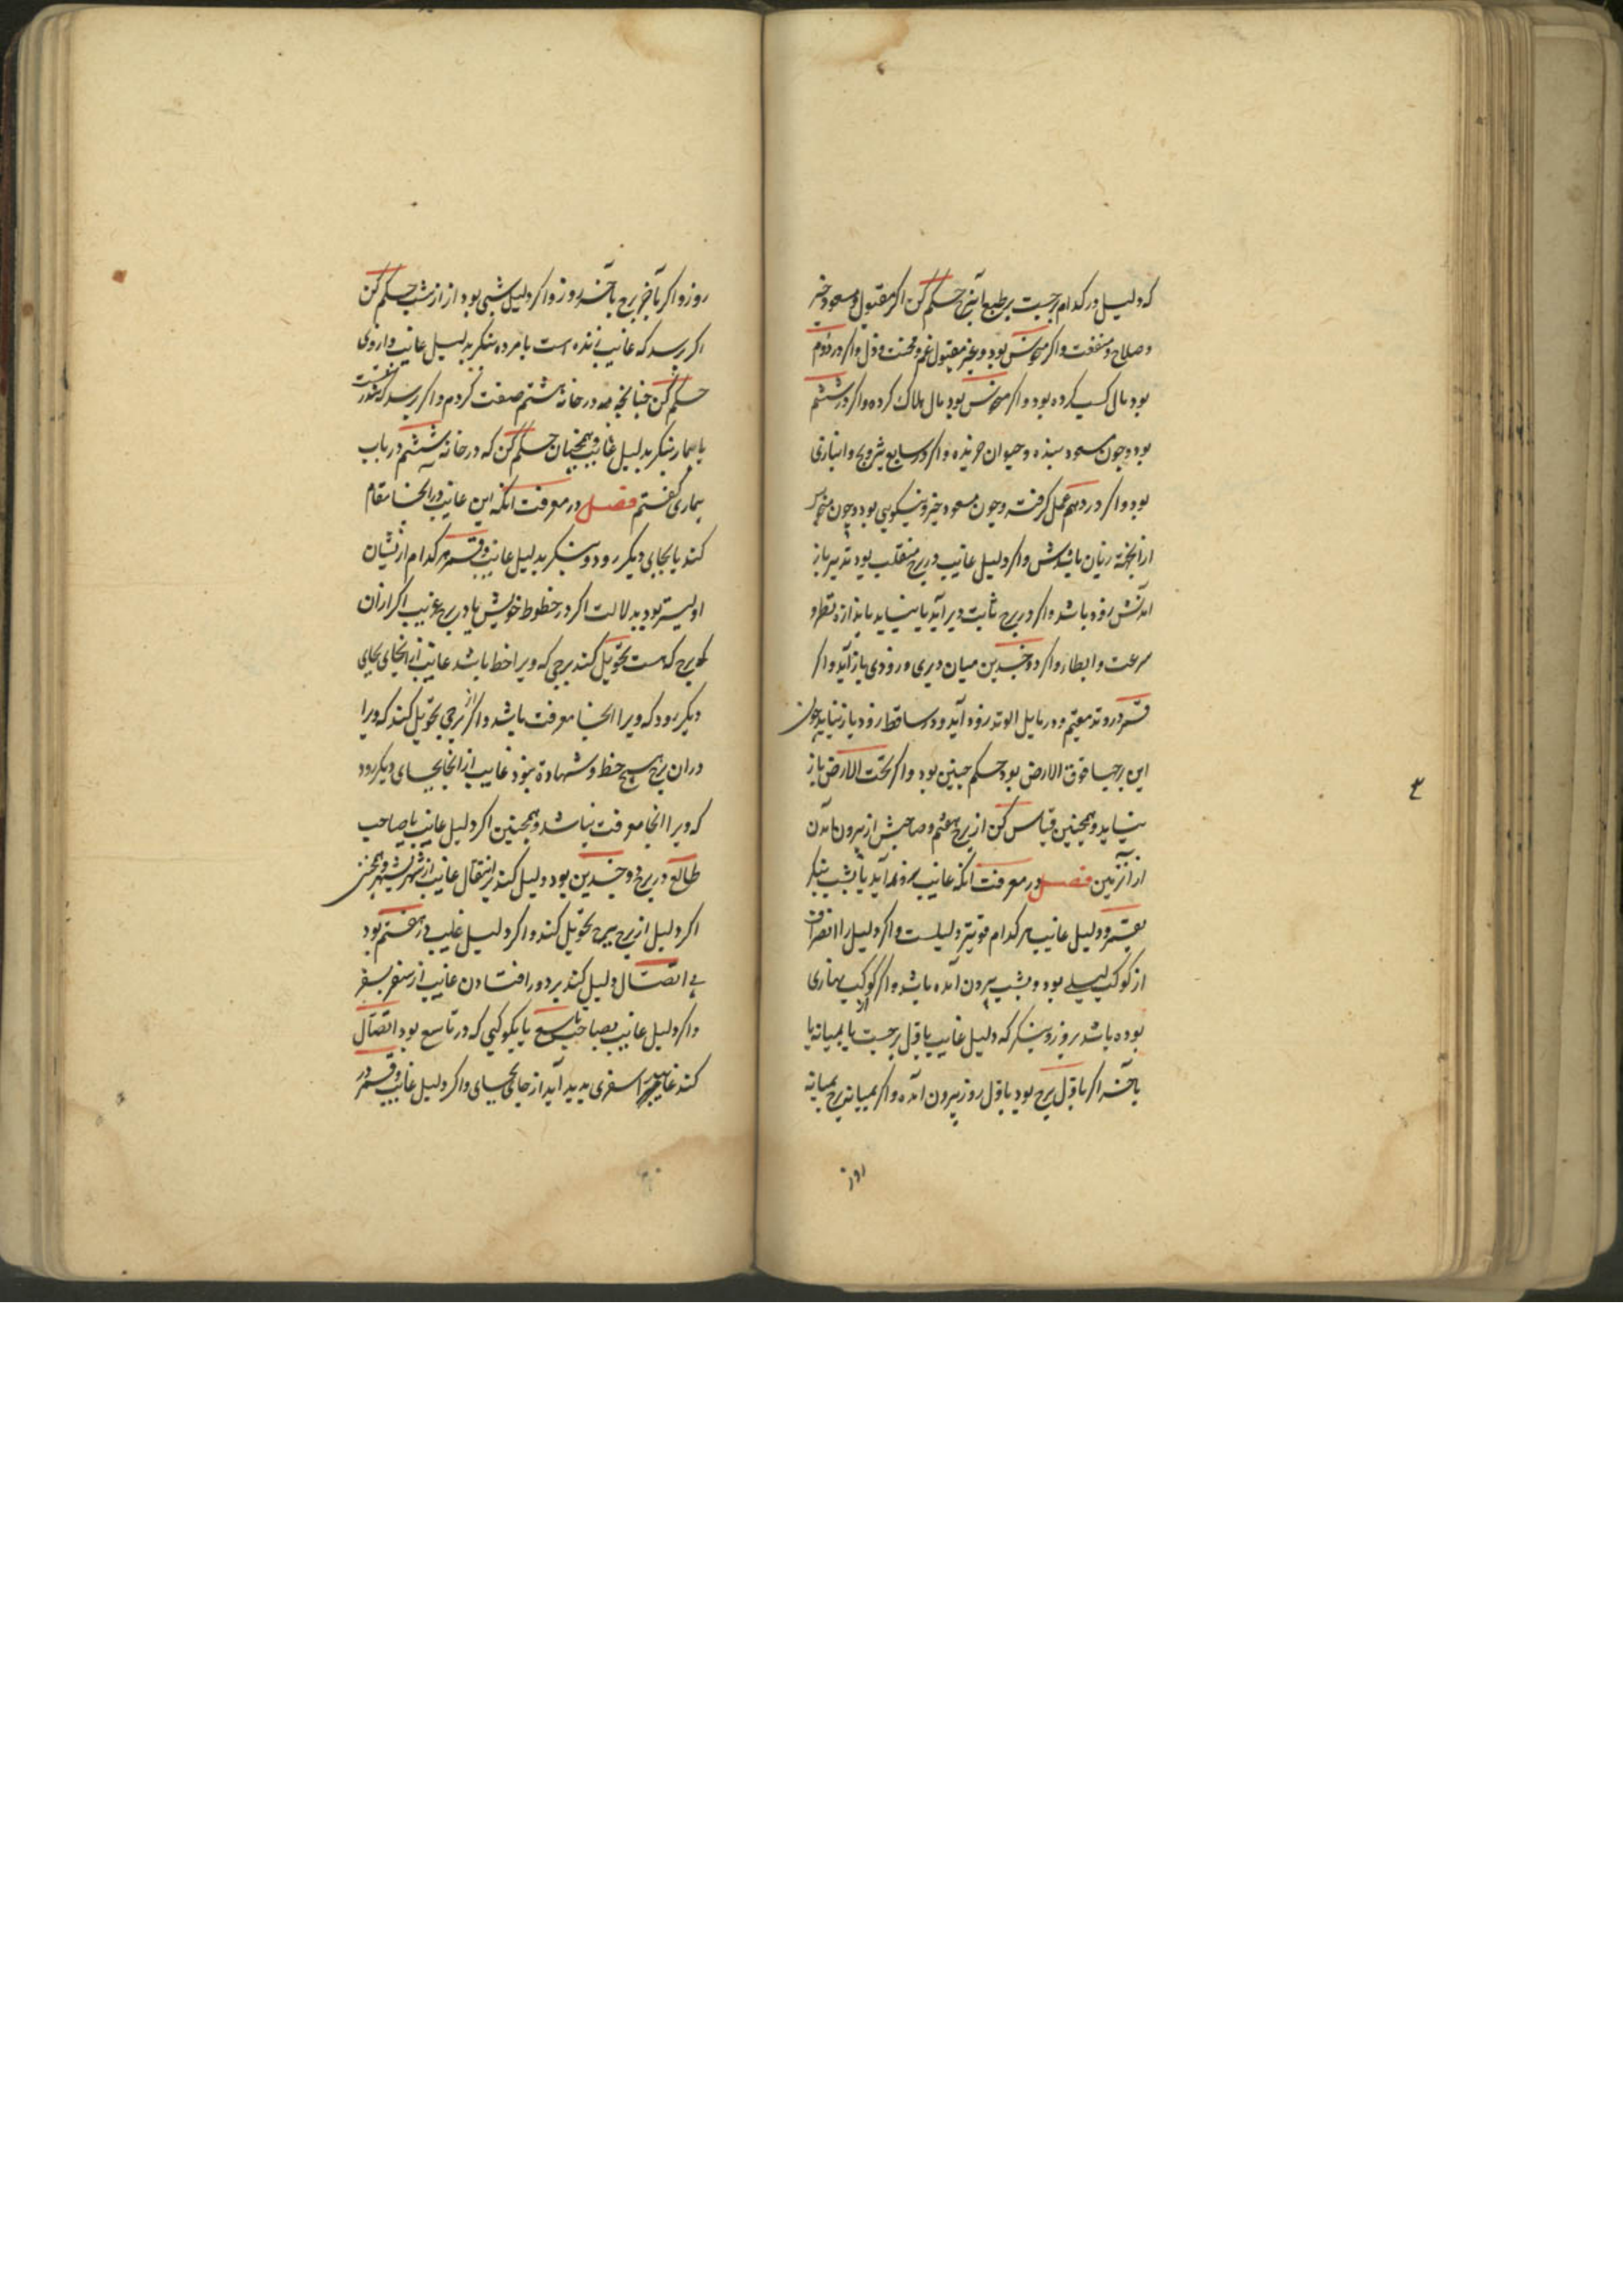 که دلیل در کدام برجست بر طبع آن برج حکم کن اکر مقبول و مسعود خیر
و صلاح و منفعت و اکر منحوس بود و غیر مقبول غم و محنت و ذل و اکر در دوم
بود مالی کسب کرده بود و اکر منحوس بود مال هلاک کرده و اکر در ششم
بود و چون مسعود بنده و حیوان خریده و اکر در سابع تزویج و انبازی
بود و اکر در دهم عمل کرفته و چون مسعود خیر و نیکویی بود و چون منحوس
از انچه زیان باشدش و اکر دلیل غایب در برج منقلب بود تدبیر باز
آمدنش زود باشد و اکر در برج ثابت دیر آید یا نیاید باندازه نظر و
سرعت و ابطا و اکر ذوجسدین میان دیری و زودی باز آید و اکر
قمر در وتد مقیم و در مایل الوتد زود آید و در ساقط زود باز نیاید چون
این برجها فوق الارض بود حکم چنین بود و اکر تحت الارض باز
نیاید و همچنین قیاس کن از برج هفتم و صاحبش از بیرون آمدن
از آن زمین فصل در معرفت آنکه غایب بروز آید یا بشب بنکر
بقمر و دلیل غایب هر کدام قویتر دلیلست و اکر دلیل را انصراف
از کوکب لیلی بود و بشب بیرون آمده باشد و اکر از کوکب نهاری
بوده باشد بروز و بنکر که دلیل غایب باول برجست یا بمیانه یا
بآخر اکر باول برج بود باول روز بیرون آمده و اکر بمیانه برج بمیانه
روز
روز و اکر بآخر برج بآخر روز و اکر دلیل شبی بود از آن شب حکم کن
اکر پرسد که غایب زنده است یا مرده بنکر بدلیل غایب و از وی
حکم کن چنانچه در خانه هشتم صفت کردم و اکر پرسد که تندرست
یا بیمار بنکر بدلیل غایب و همچنان حکم کن که در خانه ششم در باب
بیماری کفتم فصل در معرفت آنکه این غایب در آنجا مقام
کند یا بجای دیکر رود و بنکر بدلیل غایب و قمر هر کدام از ایشان
اولیتر بود بدلالت اکر در حظوظ خویش یا در برج غریب اکر از آن
برج که هست تحویل کند ببرجی که ویرا حظ باشد غایب از آنجای بجای
دیکر رود که ویرا آنجا معرفت باشد و اکر از برجی تحویل کند که ویرا
در آن برج هیچ حظ و شهادة نبود غایب از آنجا بجای دیکر رود
که ویرا آنجا معرفت نباشد و همچنین اکر دلیل غایب یا صاحب
طالع در برج ذوجسدین بود دلیل کند بر انتقال غایب از شهر بشهر و همچنین
اکر دلیل از برج ببرج تحویل کند و اکر دلیل غایب در هفتم بود
بی اتصال دلیل کند بر دور افتادن غایب از سفر بسفر
و اکر دلیل غایب بصاحب تاسع یا بکوکبی که در تاسع بود اتصال
کند غایب را سفری پدید آید از جای بجای و اکر دلیل غایب و قمر در